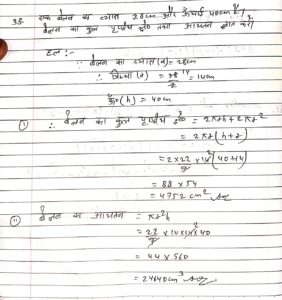 38. एक बेलन का व्यास 28cm और ऊँचाई 40cm है।
बेलन का कुल पृष्ठीय क्षे० तथा आयतन ज्ञात करो।
हल :-
∵ बेलन का व्यास(d) = 28cm
∴ त्रिज्या (r) = 28/2 = 14cm
ऊँ० (h) = 40cm
(i) ∴ बेलन का कुल पृष्ठीय क्षे० = 2πrh + 2πr²
= 2πr(h+r)
= 2×22/7 × 14 (40+14)
= 88 × 54
= 4752 cm² Ans
(ii) बेलन का आयतन = πr²h
= 22/7 × 14×14×40
= 44 × 560
= 24640cm³ Ans